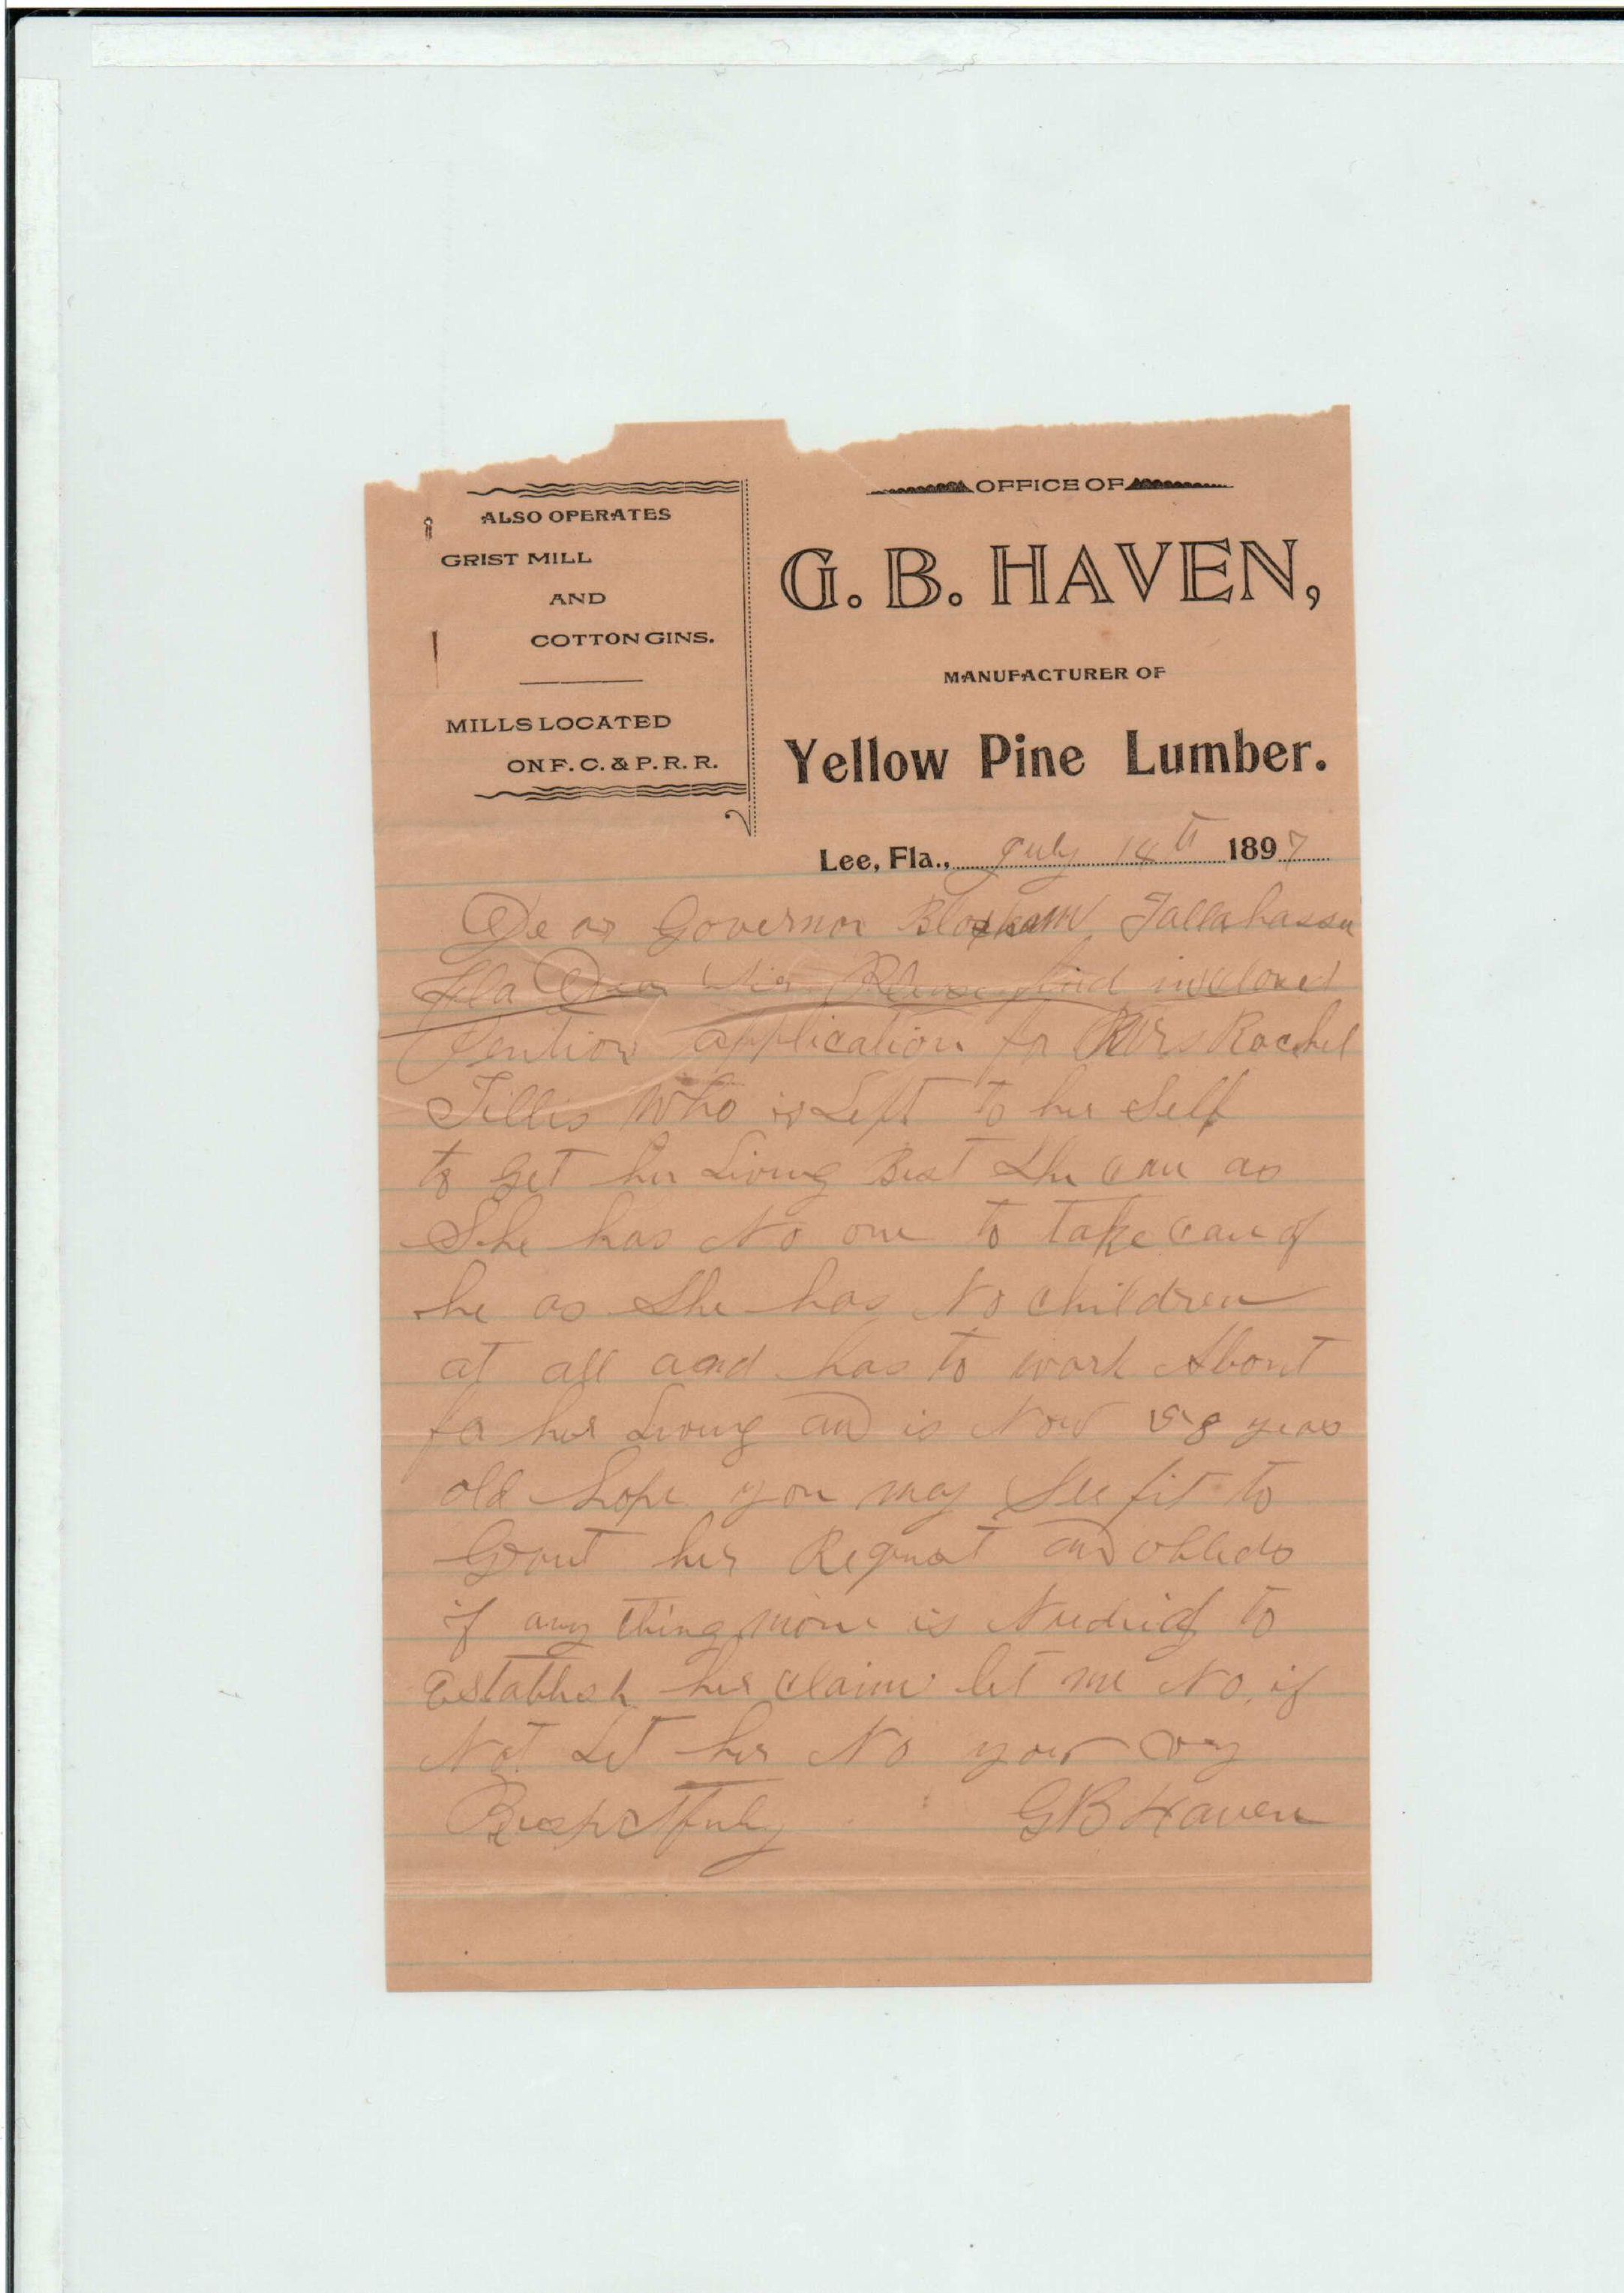 OFFICE OF
G. B. HAVEN,
MANUFACTURER OF
Yellow Pine Lumber.
ALSO OPERATES
GRIST MILL
AND
COTTON GINS.
MILLS LOCATED
ON F. C. & P. R. R.
Lee, Fla., July 14th 1897
Dear Governor Bloxham Tallahassee
Fla Dear Sir Please find inclosed
Pention application for Mrs Rachel
Tillis Who is Left to her Self
to Get her Living Best She can as
She has No one to take care of
he as She has No children
at all and has to work About
for her Living and is Now 58 years
old hope you may See fit to
Grant her Request and
if any thing more is to
Establish her claim let me No if
Not Let her No your very
Respectfuly GB Haven